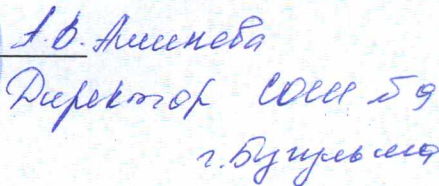 А.В. Аминева
Директор сош №9
г. Бугульма